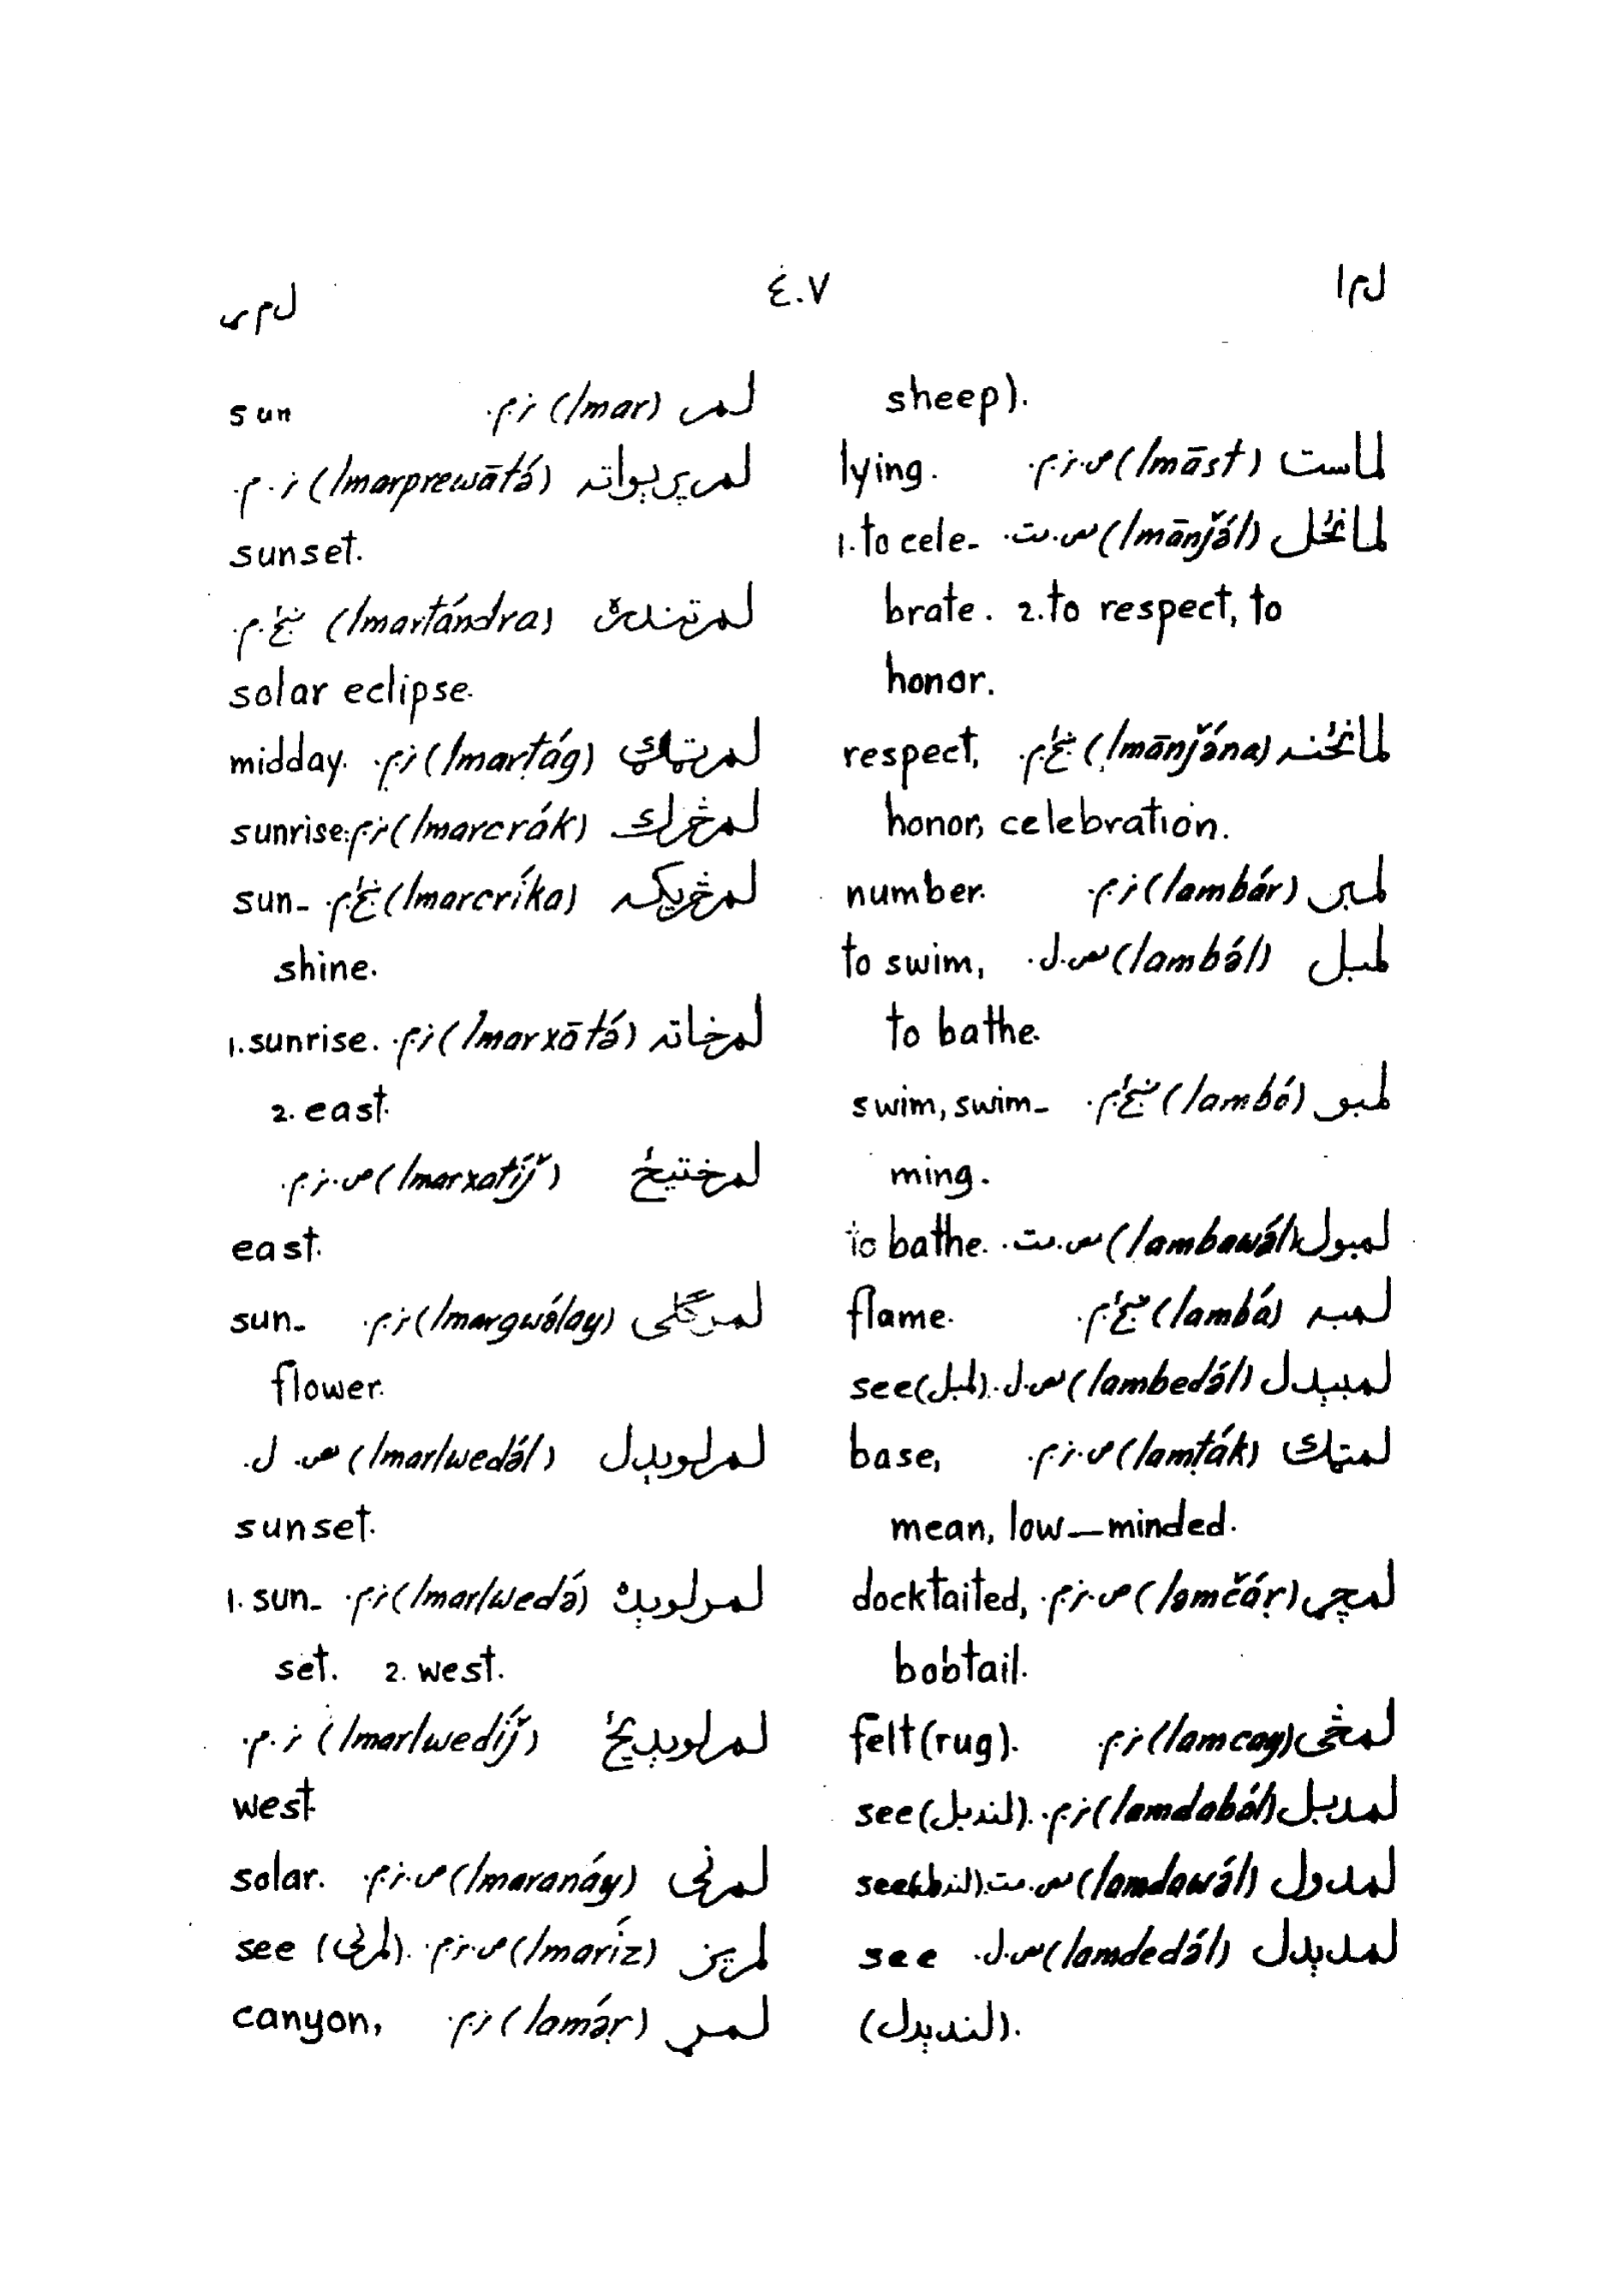 ل م ا ٤٠٧ ل م ر
sheep).
لماست (lmāst) ص.ز.م. lying.
لمانځل (lmānǰə́l) مص.مت. 1.to cele-
brate. 2.to respect, to
honor.
لمانځنه (lmānǰə́na) ښځ.م. respect,
honor, celebration.
لمبر (lambár) ز.م. number.
لمبل (lambə́l) مص.ل. to swim,
to bathe.
لمبو (lambó) ښځ.م. swim, swim-
ming.
لمبول (lambawə́l) مص.مت. to bathe.
لمبه (lambá) ښځ.م. flame.
لمبېدل (lambedə́l) مص.ل. see (لمبل).
لمټک (lamṭák) ص.ز.م. base,
mean, low—minded.
لمچړ (ləmčáṛ) ص.ز.م. docktailed,
bobtail.
لمڅی (lamcay) ز.م. felt (rug).
لمدبل (lamdabə́l) ز.م. see (لندبل).
لمدول (lamdawə́l) مص.مت.
لمدېدل (lamdedə́l) مص.ل. see
(لندېدل).
لمر (lmar) ز.م. sun
لمرپرېواته (lmarprewātə́) ز.م.
sunset.
لمرتندره (lmartándra) ښځ.م.
solar eclipse.
لمرټګ (lmarṭág) ز.م. midday.
لمرڅرک (lmarcrák) ز.م. sunrise.
لمرڅریکه (lmarcríka) ښځ.م. sun-
shine.
لمرخاته (lmarxātə́) ز.م. 1.sunrise.
2. east.
لمرختیځ (lmarxatíǰ) ص.ز.م.
east.
لمرګلی (lmargwə́lay) ز.م. sun-
flower.
لمرلوېدل (lmarlwedə́l) مص.ل.
sunset.
لمرلوېده (lmarlwedə́) ز.م. 1. sun-
set. 2. west.
لمرلوېدیځ (lmarlwedíǰ) ز.م.
west
لمرنی (lmaranáy) ص.ز.م. solar.
لمریز (lmaríz) ص.ز.م. see (لمرنی).
لمړ (lamə́ṛ) ز.م. canyon,